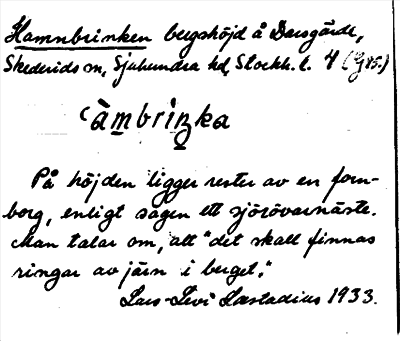 Hamnbrinken bergshöjd å Darsgärde,
Skederids sn, Sjuhundra hd, Stockh. l. 4 (G 95.)
`àmbriṉka
På höjden ligger rester av en forn-
borg, enligt sagen ett sjörövarnäste.
Man talar om, att "det skall finnas
ringar av järn i berget."
Lars-Levi Læstadius 1933.